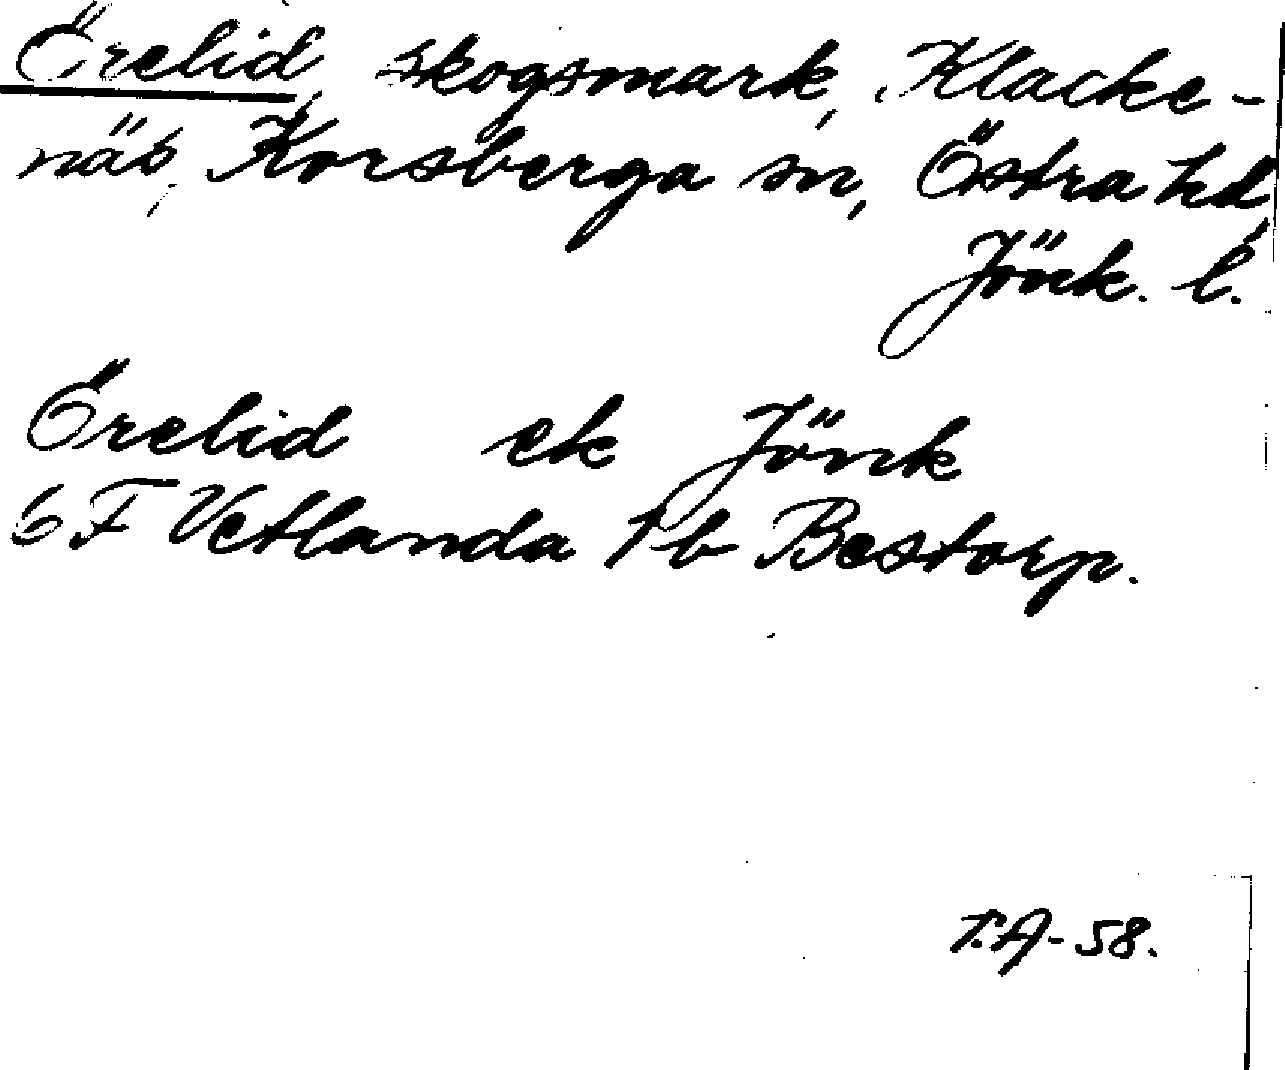 Örelid, skogsmark, Klacke-
näs, Korsberga sn, Östra hd,
Jönk. l.
Örelid ek Jönk
6 F Vetlanda 1 b Bestorp.
T.A-58.